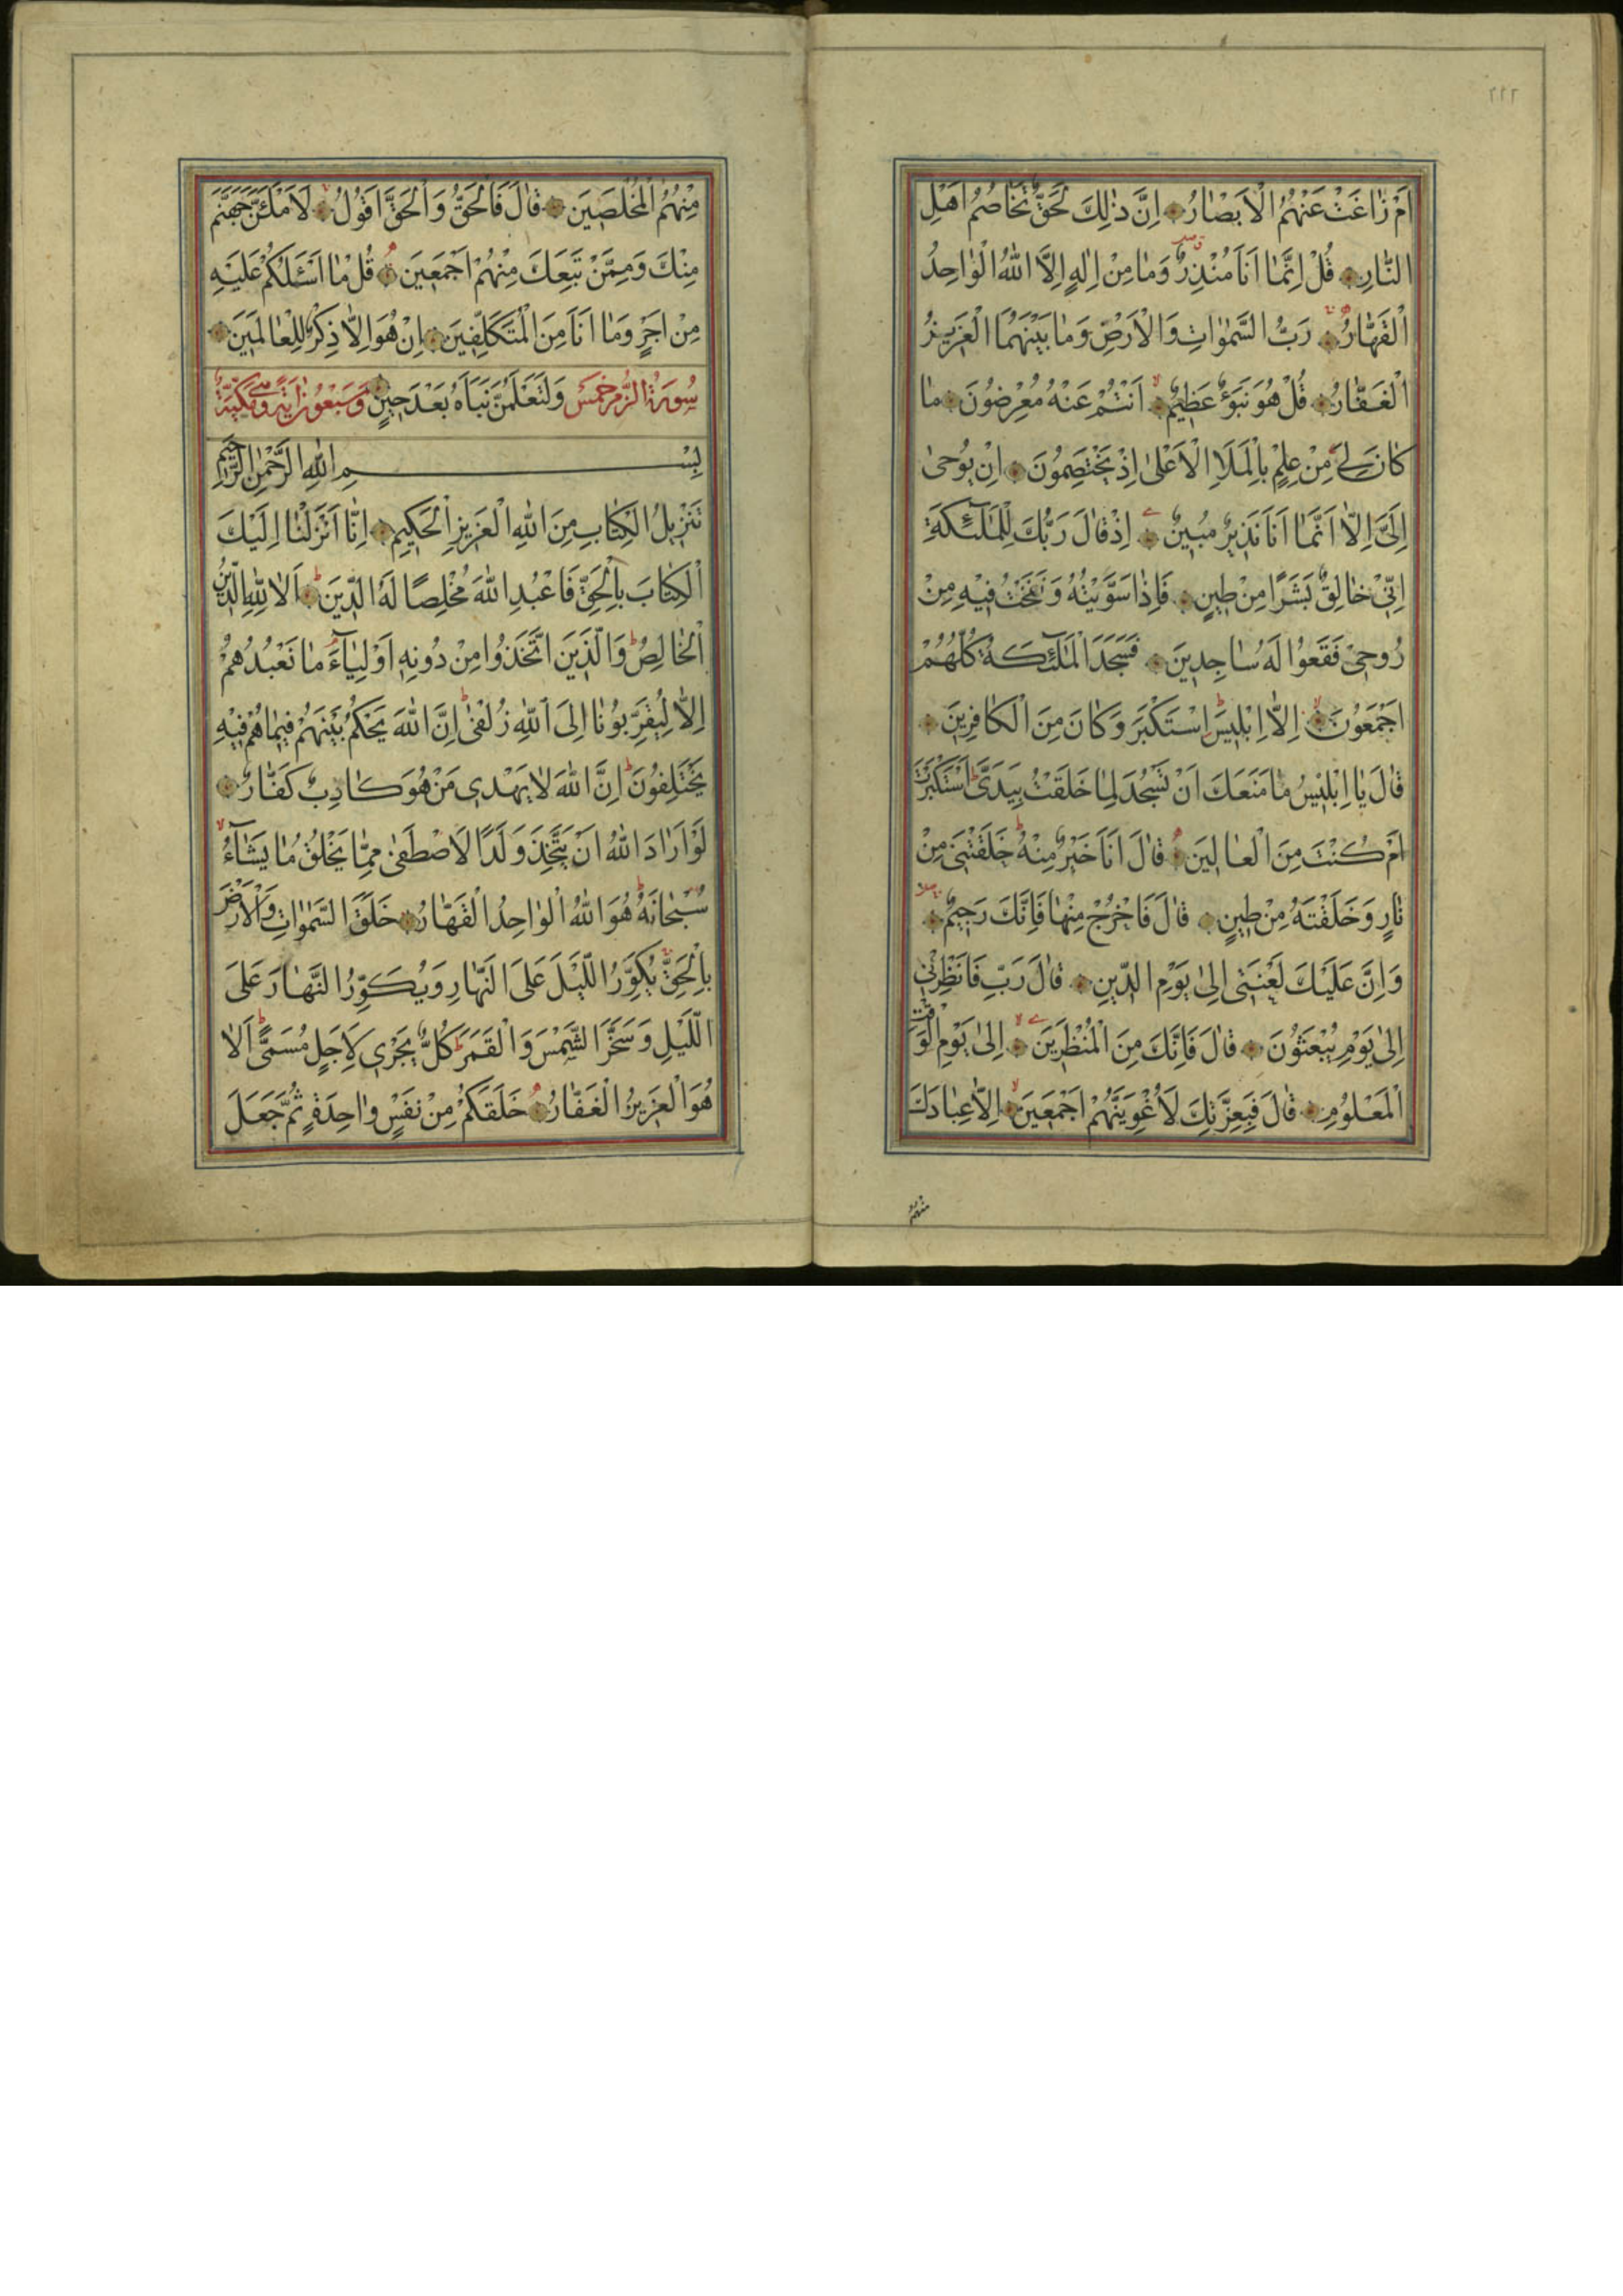 ٢٢٢
اَمْ زٰاغَتْ عَنْهُمُ الْاَبْصٰارُ اِنَّ ذٰلِكَ لَحَقٌّ تَخٰاصُمُ اَهْلِ
النّٰارِ قُلْ اِنَّمٰا اَنَا مُنْذِرٌ وَمٰا مِنْ اِلٰهٍ اِلَّا اللّٰهُ الْوٰاحِدُ
الْقَهّٰارُ رَبُّ السَّمٰوٰاتِ وَالْاَرْضِ وَمٰا بَيْنَهُمَا الْعَزِيزُ
الْغَفّٰارُ قُلْ هُوَ نَبَؤٌ عَظِيمٌ اَنْتُمْ عَنْهُ مُعْرِضُونَ مٰا
كٰانَ لِيَ مِنْ عِلْمٍ بِالْمَلَاِ الْاَعْلىٰ اِذْ يَخْتَصِمُونَ اِنْ يُوحىٰ
اِلَيَّ اِلّٰا اَنَّمٰا اَنَا نَذِيرٌ مُبِينٌ اِذْ قٰالَ رَبُّكَ لِلْمَلٰٓئِكَةِ
اِنِّي خٰالِقٌ بَشَرًا مِنْ طِينٍ فَاِذٰا سَوَّيْتُهُ وَنَفَخْتُ فِيهِ مِنْ
رُوحِي فَقَعُوا لَهُ سٰاجِدِينَ فَسَجَدَ الْمَلٰٓئِكَةُ كُلُّهُمْ
اَجْمَعُونَ اِلّٰا اِبْلِيسَ اسْتَكْبَرَ وَكٰانَ مِنَ الْكٰافِرِينَ
قٰالَ يٰا اِبْلِيسُ مٰا مَنَعَكَ اَنْ تَسْجُدَ لِمٰا خَلَقْتُ بِيَدَيَّ اَسْتَكْبَرْتَ
اَمْ كُنْتَ مِنَ الْعٰالِينَ قٰالَ اَنَا خَيْرٌ مِنْهُ خَلَقْتَنِي مِنْ
نٰارٍ وَخَلَقْتَهُ مِنْ طِينٍ قٰالَ فَاخْرُجْ مِنْهٰا فَاِنَّكَ رَجِيمٌ
وَاِنَّ عَلَيْكَ لَعْنَتِي اِلىٰ يَوْمِ الدِّينِ قٰالَ رَبِّ فَاَنْظِرْنِي
اِلىٰ يَوْمِ يُبْعَثُونَ قٰالَ فَاِنَّكَ مِنَ الْمُنْظَرِينَ اِلىٰ يَوْمِ الْوَقْتِ
الْمَعْلُومِ قٰالَ فَبِعِزَّتِكَ لَاُغْوِيَنَّهُمْ اَجْمَعِينَ اِلّٰا عِبٰادَكَ
منهم
مِنْهُمُ الْمُخْلَصِينَ قٰالَ فَالْحَقُّ وَالْحَقَّ اَقُولُ لَاَمْلَئَنَّ جَهَنَّمَ
مِنْكَ وَمِمَّنْ تَبِعَكَ مِنْهُمْ اَجْمَعِينَ قُلْ مٰا اَسْئَلُكُمْ عَلَيْهِ
مِنْ اَجْرٍ وَمٰا اَنَا مِنَ الْمُتَكَلِّفِينَ اِنْ هُوَ اِلّٰا ذِكْرٌ لِلْعٰالَمِينَ
سُورَةُ الزُّمَر خَمْسٌ وَلَتَعْلَمُنَّ نَبَاَهُ بَعْدَ حِينٍ وَسَبْعُونَ اٰيَةً وَهِيَ مَكِّيَّةٌ
بِسْمِ اللّٰهِ الرَّحْمٰنِ الرَّحِيمِ
تَنْزِيلُ الْكِتٰابِ مِنَ اللّٰهِ الْعَزِيزِ الْحَكِيمِ اِنّٰا اَنْزَلْنٰا اِلَيْكَ
الْكِتٰابَ بِالْحَقِّ فَاعْبُدِ اللّٰهَ مُخْلِصًا لَهُ الدِّينَ اَلٰا لِلّٰهِ الدِّينُ
الْخٰالِصُ وَالَّذِينَ اتَّخَذُوا مِنْ دُونِهِ اَوْلِيٰٓاءَ مٰا نَعْبُدُهُمْ
اِلّٰا لِيُقَرِّبُونٰا اِلَى اللّٰهِ زُلْفىٰ اِنَّ اللّٰهَ يَحْكُمُ بَيْنَهُمْ فِيمٰا هُمْ فِيهِ
يَخْتَلِفُونَ اِنَّ اللّٰهَ لٰا يَهْدِي مَنْ هُوَ كٰاذِبٌ كَفّٰارٌ
لَوْ اَرٰادَ اللّٰهُ اَنْ يَتَّخِذَ وَلَدًا لَاصْطَفىٰ مِمّٰا يَخْلُقُ مٰا يَشٰٓاءُ
سُبْحٰانَهُ هُوَ اللّٰهُ الْوٰاحِدُ الْقَهّٰارُ خَلَقَ السَّمٰوٰاتِ وَالْاَرْضَ
بِالْحَقِّ يُكَوِّرُ اللَّيْلَ عَلَى النَّهٰارِ وَيُكَوِّرُ النَّهٰارَ عَلَى
اللَّيْلِ وَسَخَّرَ الشَّمْسَ وَالْقَمَرَ كُلٌّ يَجْرِي لِاَجَلٍ مُسَمًّى اَلٰا
هُوَ الْعَزِيزُ الْغَفّٰارُ خَلَقَكُمْ مِنْ نَفْسٍ وٰاحِدَةٍ ثُمَّ جَعَلَ